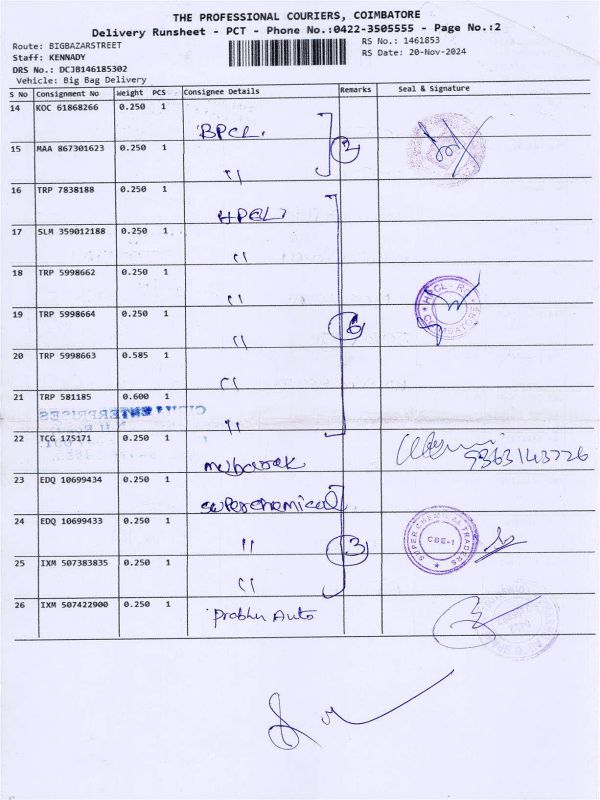 THE PROFESSIONAL COURIERS, COIMBATORE
Delivery Runsheet - PCT - Phone No.:0422-3505555 - Page No.:2
Route: BIGBAZARSTREET
RS No.: 1461853
Staff: KENNADY
RS Date: 20-Nov-2024
DRS No.: DCJB146185302
Vehicle: Big Bag Delivery
S No Consignment No Weight PCS Consignee Details Remarks Seal & Signature
14 KOC 61868266 0.250 1 BPCL.
15 MAA 867301623 0.250 1 "
2
16 TRP 7838188 0.250 1 HPCL
17 SLM 359012188 0.250 1 "
18 TRP 5998662 0.250 1 "
19 TRP 5998664 0.250 1 "
6
COIMBATORE
20 TRP 5998663 0.585 1 "
21 TRP 581185 0.600 1 "
ENTERPRISES
22 TCG 175171 0.250 1 mubarak
9363143726
23 EDQ 10699434 0.250 1 Superchemical
24 EDQ 10699433 0.250 1 "
3
SUPER CHEMICAL TRADERS
CBE-1
25 IXM 507383835 0.250 1 "
26 IXM 507422900 0.250 1 Prabhu Auto